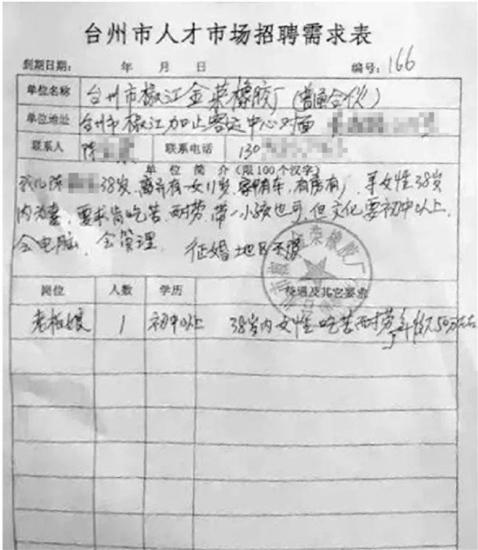 台州市人才市场招聘需求表
到期日期: 年 月 日 编号: 166
单位名称 台州市椒江金荣橡胶厂(普通合伙)
单位地址 台州市椒江加止客运中心对面
联系人 陈 联系电话 130
单位简介(限100个汉字)
我儿陈 38岁,离异有一女儿 有车,有房,有厂 寻女性38岁
内 要求肯吃苦、耐劳,带一小孩也可,但文化要初中以上,
会电脑,会管理. 征婚地区不限
金荣橡胶厂
岗位 人数 学历 待遇及其它要求
老板娘 1 初中以上 38岁内女性吃苦耐劳年收入50万左右